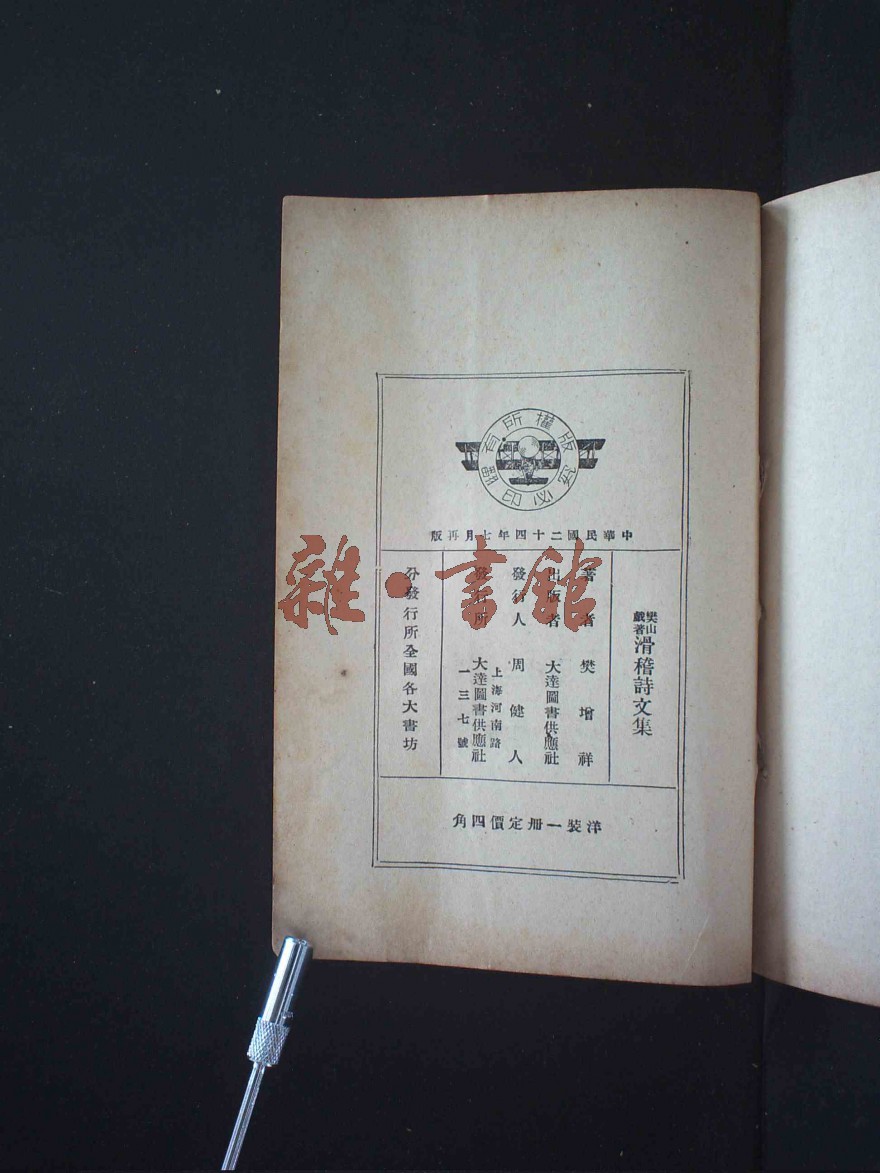 版權所有
翻印必究
中華民國二十四年七月再版
樊山
戲著
滑稽詩文集
著者 樊增祥
出版者 大達圖書供應社
發行人 周健人
發行所 大達圖書供應社
上海河南路
一三七號
分發行所全國各大書坊
洋裝一册定價四角
雜·書館